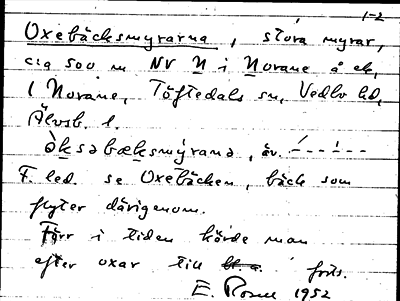 1-2
Oxebäcksmyrarna, stora myrar,
c:a 500 m NV N i Norane å ek,
1 Norane, Töftedals sn, Vedbo hd,
Älvsb. l.
òksəbæksmýrana, äv. – – – – –
F. led. se Oxebäcken, bäck som
flyter därigenom.
Förr i tiden körde man
efter oxar till forts.
E. 1952